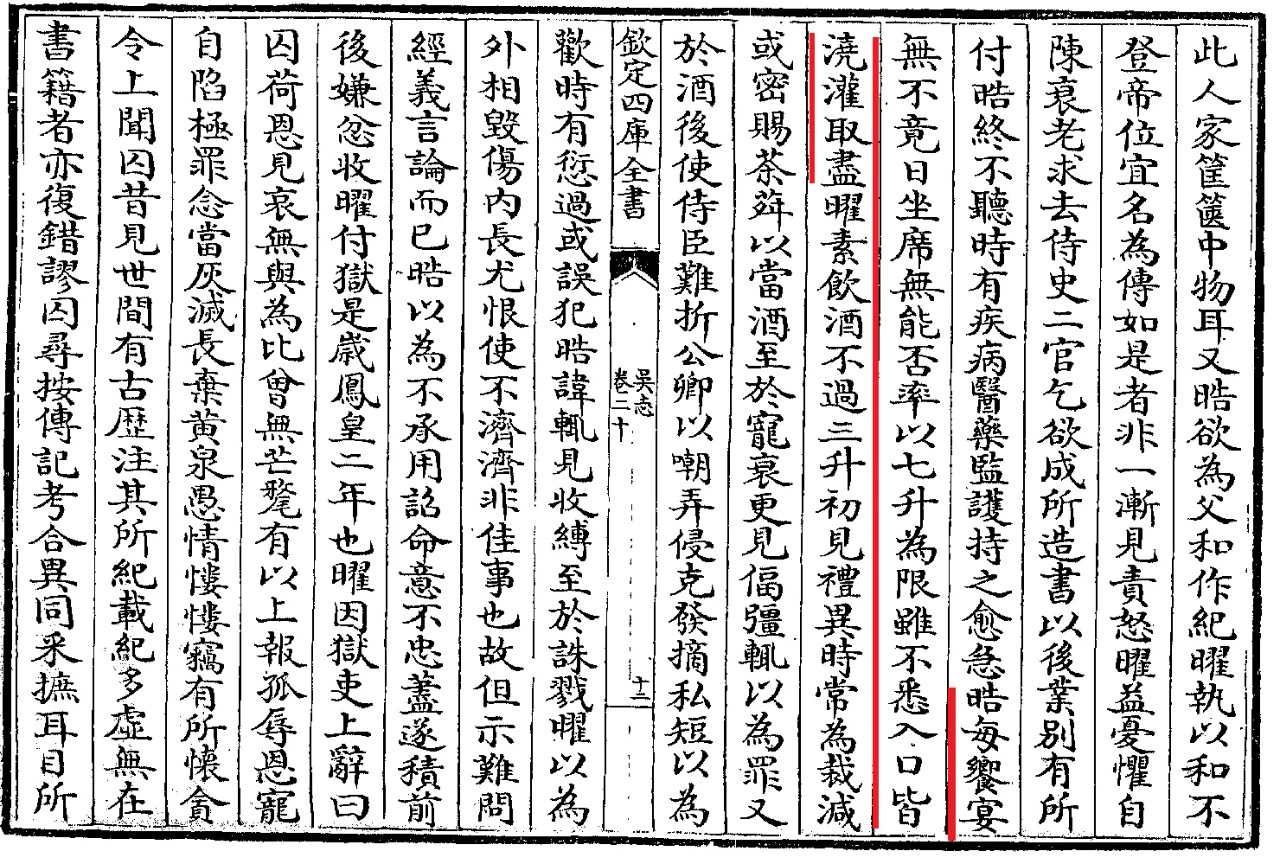 此人家筐篋中物耳又晧欲為父和作紀曜執以和不
登帝位宜名為傳如是者非一漸見責怒曜益憂懼自
陳衰老求去侍史二官乞欲成所造書以後業别有所
付晧終不聽時有疾病醫藥監護持之愈急晧每饗宴
無不竟日坐席無能否率以七升為限雖不悉入口皆
澆灌取盡曜素飲酒不過三升初見禮異時常為裁減
或密賜茶荈以當酒至於寵衰更見偪彊輒以為罪又
於酒後使侍臣難折公卿以嘲弄侵克發摘私短以為
欽定四庫全書
吳志
卷二十
十二
歡時有愆過或誤犯晧諱輒見收縛至於誅戮曜以為
外相毀傷内長尤恨使不濟濟非佳事也故但示難問
經義言論而已晧以為不承用詔命意不忠蓋遂積前
後嫌忿收曜付獄是歲鳳皇二年也曜因獄吏上辭曰
囚荷恩見哀無與為比曾無芒氂有以上報孤辱恩寵
自陷極罪念當灰滅長棄黃泉愚情慺慺竊有所懷貪
令上聞囚昔見世間有古歷注其所紀載紀多虛無在
書籍者亦復錯謬囚尋按傳記考合異同采摭耳目所